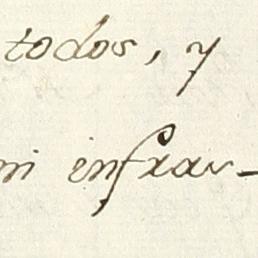 todos, y
ni enfras-